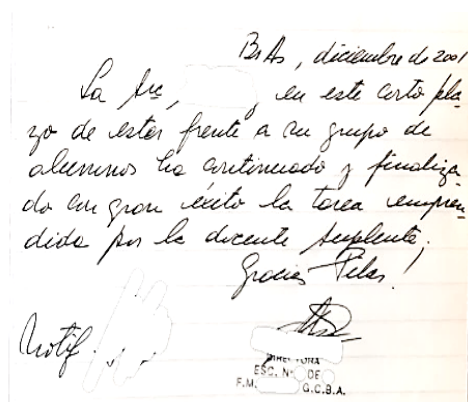 BsAs, diciembre de 2001
La Sra, , en este corto pla-
zo de estar frente a su grupo de
alumnos ha continuado y finaliza-
do con gran éxito la tarea empren-
dida por la docente suplente;
Gracias Pilar!
Notif.
DIRECTORA
ESC. Nº DE
F.M. G.C.B.A.